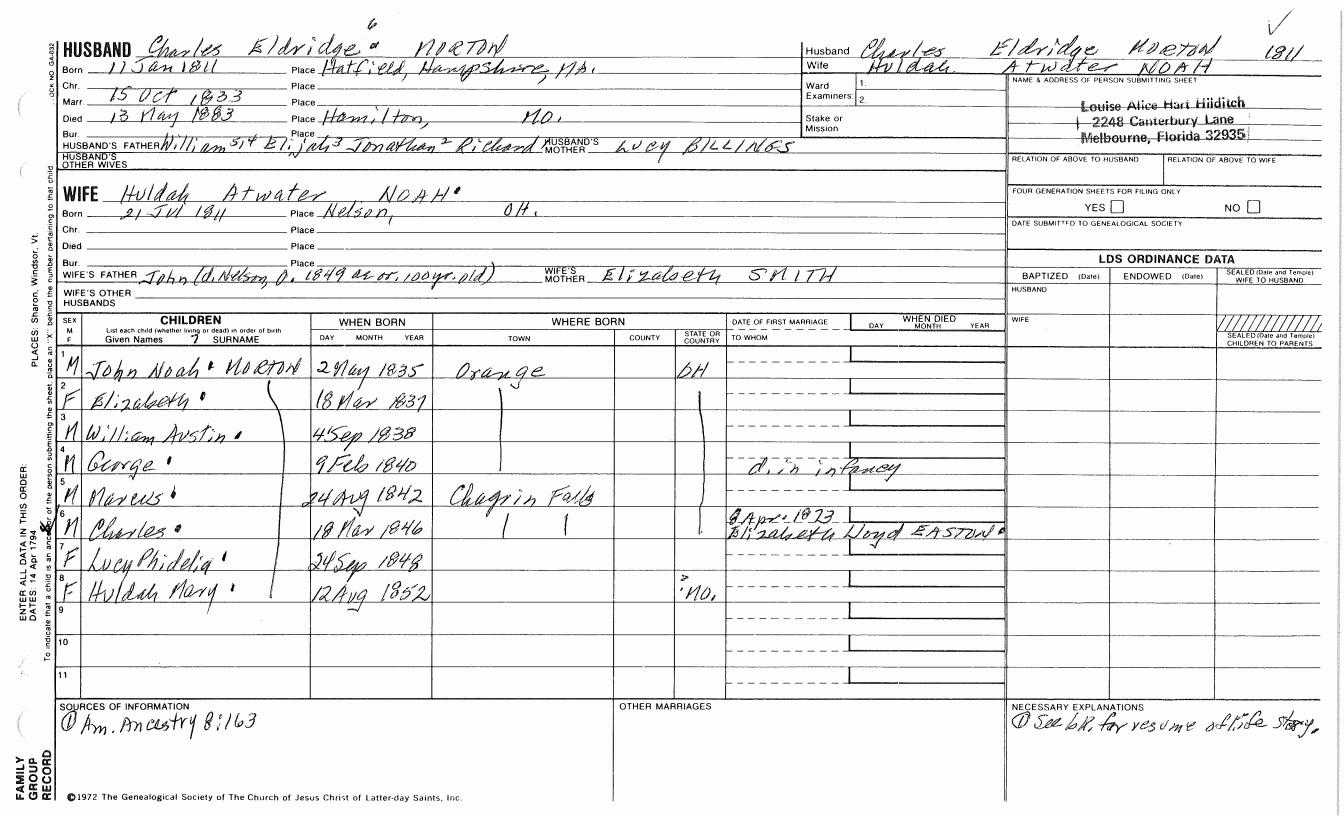 6
HUSBAND Charles Eldridge NORTON
Born 11 Jan 1811 Place Hatfield, Hampshire, MA.
Chr. Place
Marr. 15 Oct 1833 Place
Died 13 May 1883 Place Hamilton, MO.
Bur. Place
HUSBAND'S FATHER William 5, 4 Elijah 3 Jonathan 2 Richard HUSBAND'S MOTHER LUCY BILLINGS
HUSBAND'S OTHER WIVES
WIFE Huldah Atwater NOAH
Born 21 Jul 1811 Place Nelson, OH.
Chr. Place
Died Place
Bur. Place
WIFE'S FATHER John (d. Nelson, O. 1849 ae or. 100 yr. old) WIFE'S MOTHER Elizabeth SMITH
WIFE'S OTHER HUSBANDS
Husband Charles Eldridge NORTON 1811
Wife Huldah Atwater NOAH
Ward Examiners: 1. 2.
Stake or Mission
NAME & ADDRESS OF PERSON SUBMITTING SHEET
Louise Alice Hart Hilditch
2248 Canterbury Lane
Melbourne, Florida 32935
RELATION OF ABOVE TO HUSBAND RELATION OF ABOVE TO WIFE
FOUR GENERATION SHEETS FOR FILING ONLY
YES NO
DATE SUBMITTED TO GENEALOGICAL SOCIETY
LDS ORDINANCE DATA
BAPTIZED (Date) ENDOWED (Date) SEALED (Date and Temple) WIFE TO HUSBAND
HUSBAND
WIFE
SEALED (Date and Temple) CHILDREN TO PARENTS
SEX M F CHILDREN WHEN BORN WHERE BORN DATE OF FIRST MARRIAGE WHEN DIED
List each child (whether living or dead) in order of birth
Given Names 7 SURNAME DAY MONTH YEAR TOWN COUNTY STATE OR COUNTRY TO WHOM DAY MONTH YEAR
1 M John Noah NORTON 2 May 1835 Orange OH
2 F Elizabeth 18 Mar 1837
3 M William Austin 4 Sep 1838
4 M George 9 Feb 1840 d. in infancy
5 M Marcus 24 Aug 1842 Chagrin Falls
6 M Charles 18 Mar 1846 8 Apr. 1873
Elizabeth Lloyd EASTON
7 F Lucy Phidelia 24 Sep 1848
8 F Huldah Mary 12 Aug 1852 MO.
9
10
11
SOURCES OF INFORMATION
① Am. Ancestry 8:163
OTHER MARRIAGES
NECESSARY EXPLANATIONS
① See bk. for resume of life story.
©1972 The Genealogical Society of The Church of Jesus Christ of Latter-day Saints, Inc.
FAMILY GROUP RECORD
ENTER ALL DATA IN THIS ORDER:
DATES: 14 Apr 1794
PLACES: Sharon, Windsor, Vt.
To indicate that a child is an ancestor of the person submitting the sheet, place an "X" behind the number pertaining to that child.